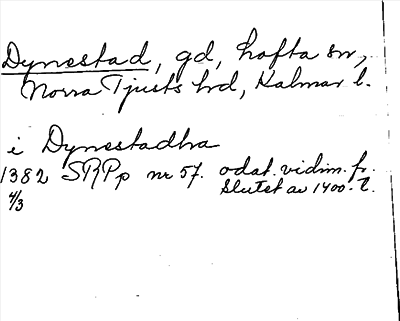 Dynestad, gd, Lofta sn,
Norra Tjusts hrd, Kalmar l.
i Dynestadha
1382 SRPp nr 57. odat. vidim. fr.
4/3 slutet av 1400-t.